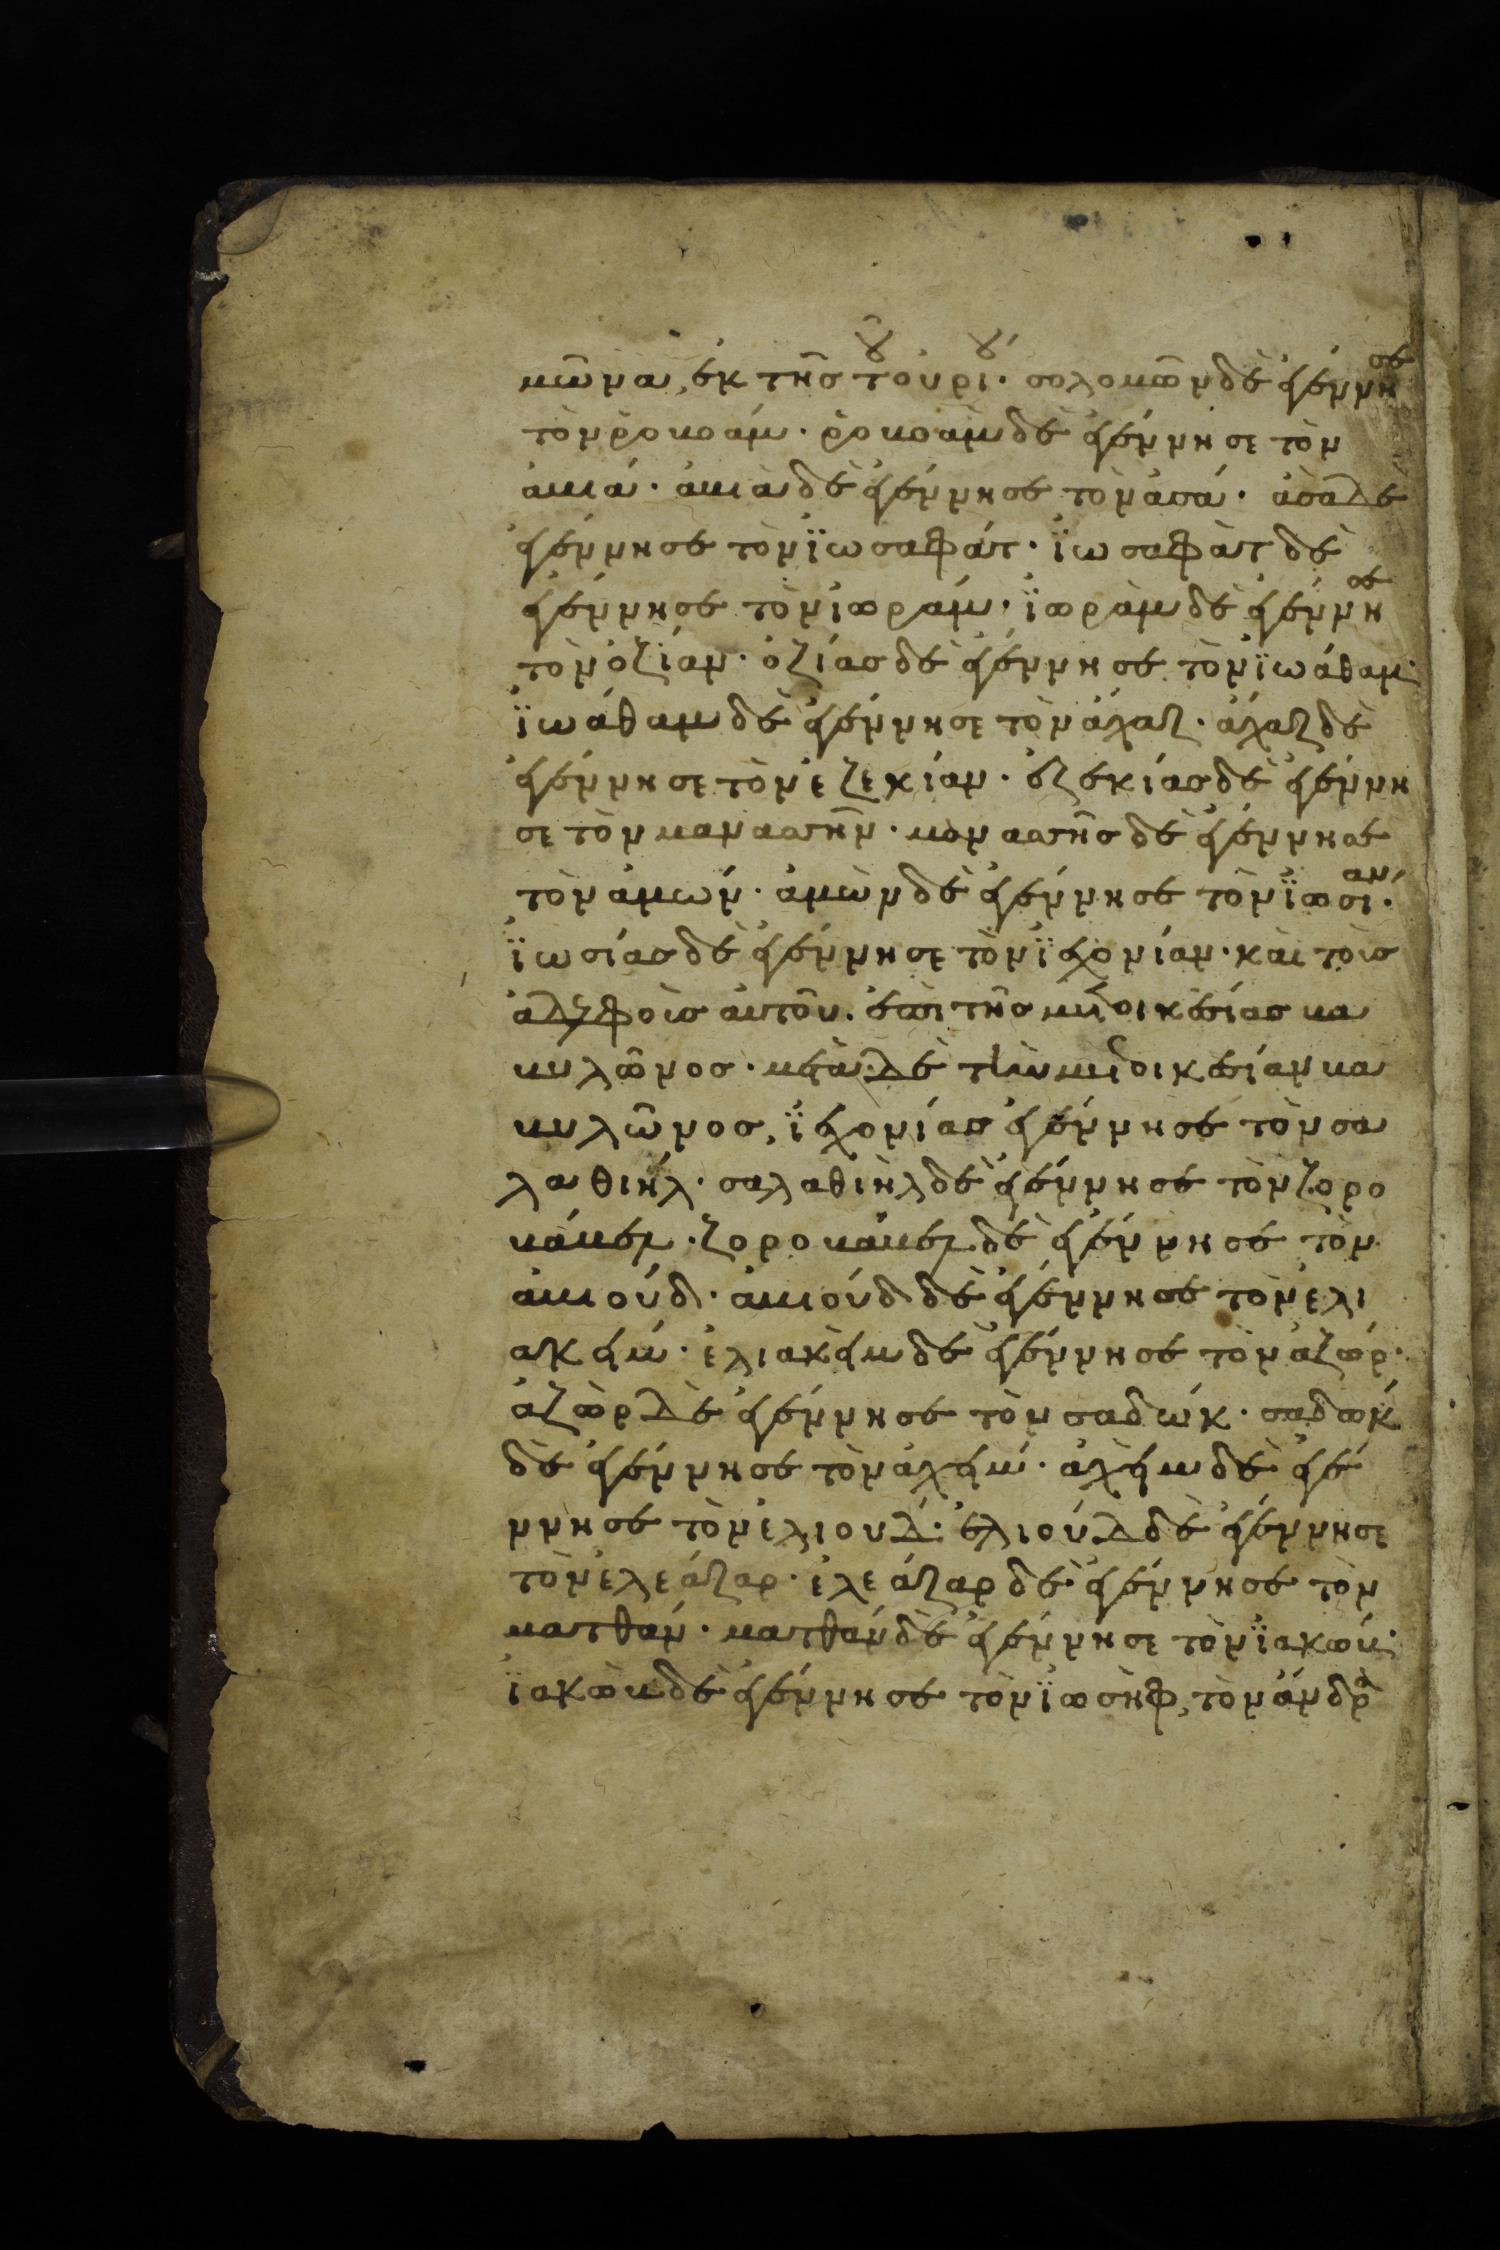 μῶνα, ἐκ τῆς τοῦ οὐρίου· σολομῶν δὲ ἐγέννησε
τὸν ῥοβοάμ· ῥοβοὰμ δὲ ἐγέννησε τὸν
ἀβιά· ἀβιὰ δὲ ἐγέννησε τὸν ἀσά· ἀσὰ δὲ
ἐγέννησε τὸν ϊωσαφάτ· ϊωσαφὰτ δὲ
ἐγέννησε τὸν ἰωράμ· ϊωρὰμ δὲ ἐγέννησε
τὸν ὀζίαν· ὀζίας δὲ ἐγέννησε τὸν ϊωάθαμ·
ϊωάθαμ δὲ ἐγέννησε τὸν ἀχαζ· ἀχαζ δὲ
ἐγέννησε τὸν ἐζεκίαν· ἐζεκίας δὲ ἐγέννη
σε τὸν μανασσῆν· μανασσῆς δὲ ἐγέννησε
τὸν ἀμών· ἀμὼν δὲ ἐγέννησε τὸν ϊωσίαν·
ϊωσίας δὲ ἐγέννησε τὸν ϊεχονίαν· καὶ τοὺς
ἀδελφοὺς αὐτοῦ· ἐπὶ τῆς μετοικεσίας βα
βυλῶνος· μετὰ δὲ τὴν μετοικεσίαν βα
βυλῶνος, ϊεχονίας ἐγέννησε τὸν σα
λαθιήλ· σαλαθιὴλ δὲ ἐγέννησε τὸν ζορο
βάβελ· ζοροβάβελ δὲ ἐγέννησε τὸν
ἀβιούδ· ἀβιούδ δὲ ἐγέννησε τὸν ἐλι
ακείμ· ἐλιακεὶμ δὲ ἐγέννησε τὸν ἀζώρ·
ἀζὼρ δὲ ἐγέννησε τὸν σαδώκ· σαδώκ
δὲ ἐγέννησε τὸν ἀχείμ· ἀχεὶμ δὲ ἐγέ
ννησε τὸν ἐλιουδ· ἐλιούδ δὲ ἐγέννησε
τὸν ἐλεάζαρ· ἐλεάζαρ δὲ ἐγέννησε τὸν
ματθάν· ματθάν δὲ ἐγέννησε τὸν ϊακώβ·
ϊακὼβ δὲ ἐγέννησε τὸν ϊωσὴφ, τὸν ἄνδρα